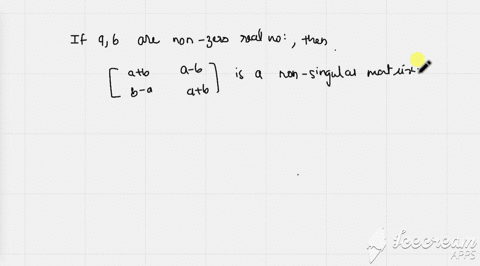 If a,b are non-zero real no:, then
[ a+b a-b
b-a a+b ] is a non-singular matrix.
Icecream
APPS